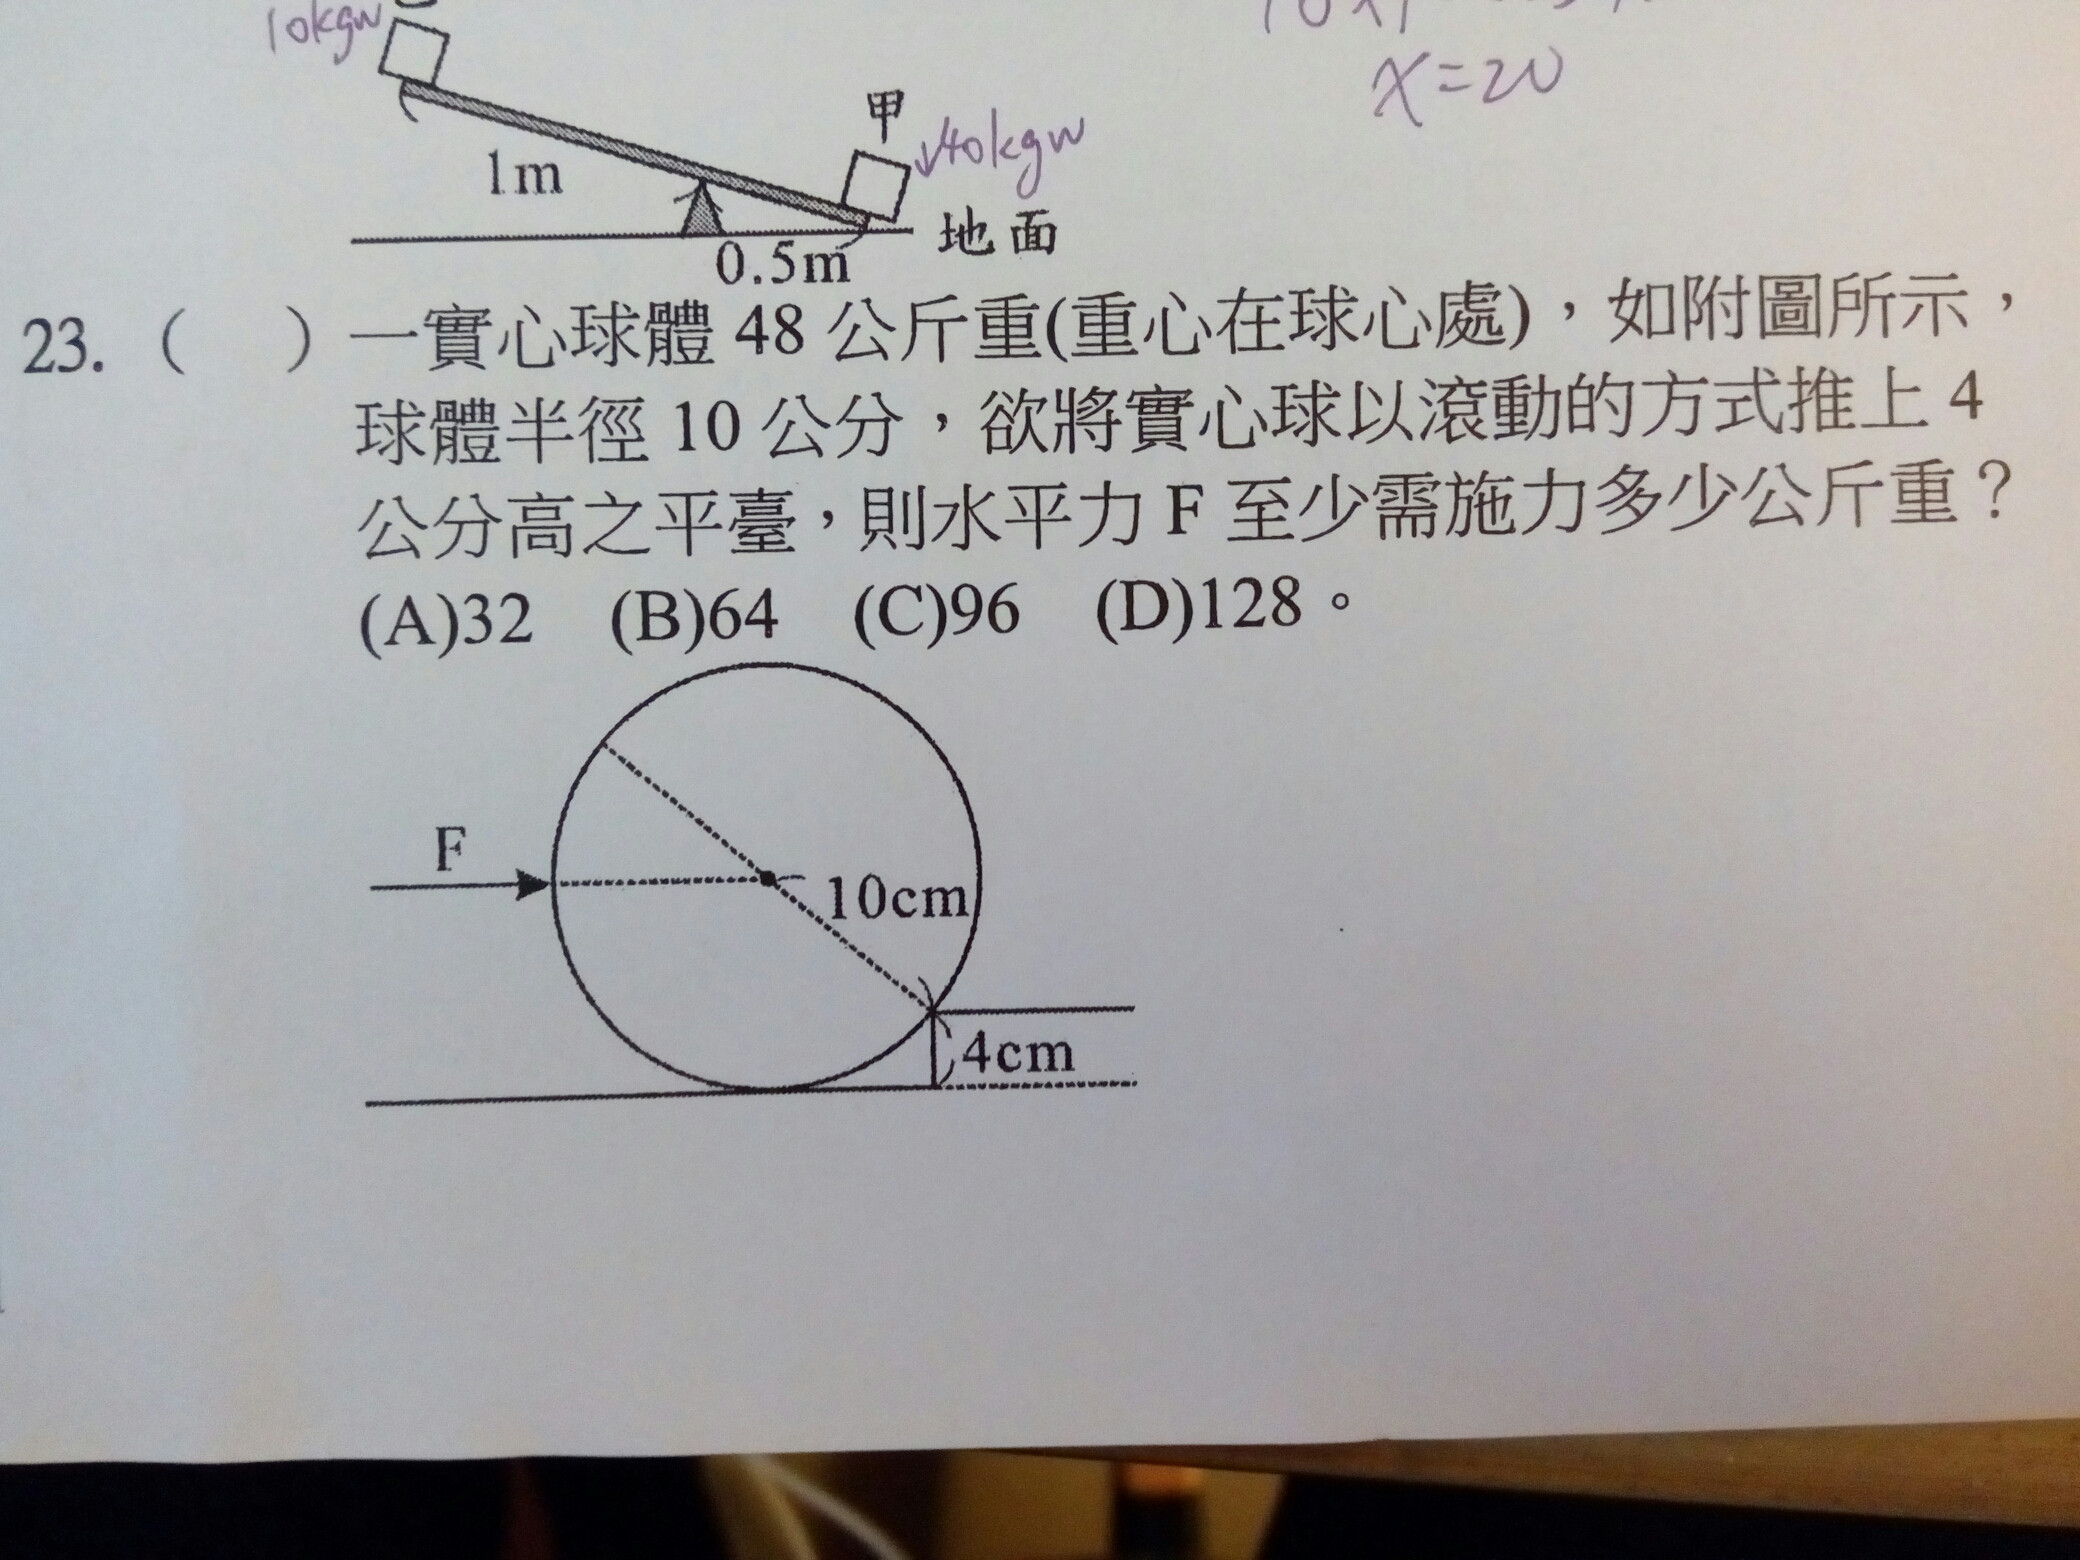 10kgw
x=20
甲
↓40kgw
1m
地面
0.5m
23. (　) 一實心球體 48 公斤重(重心在球心處)，如附圖所示，
球體半徑 10 公分，欲將實心球以滾動的方式推上 4
公分高之平臺，則水平力 F 至少需施力多少公斤重？
(A)32 (B)64 (C)96 (D)128。
F
10cm
4cm